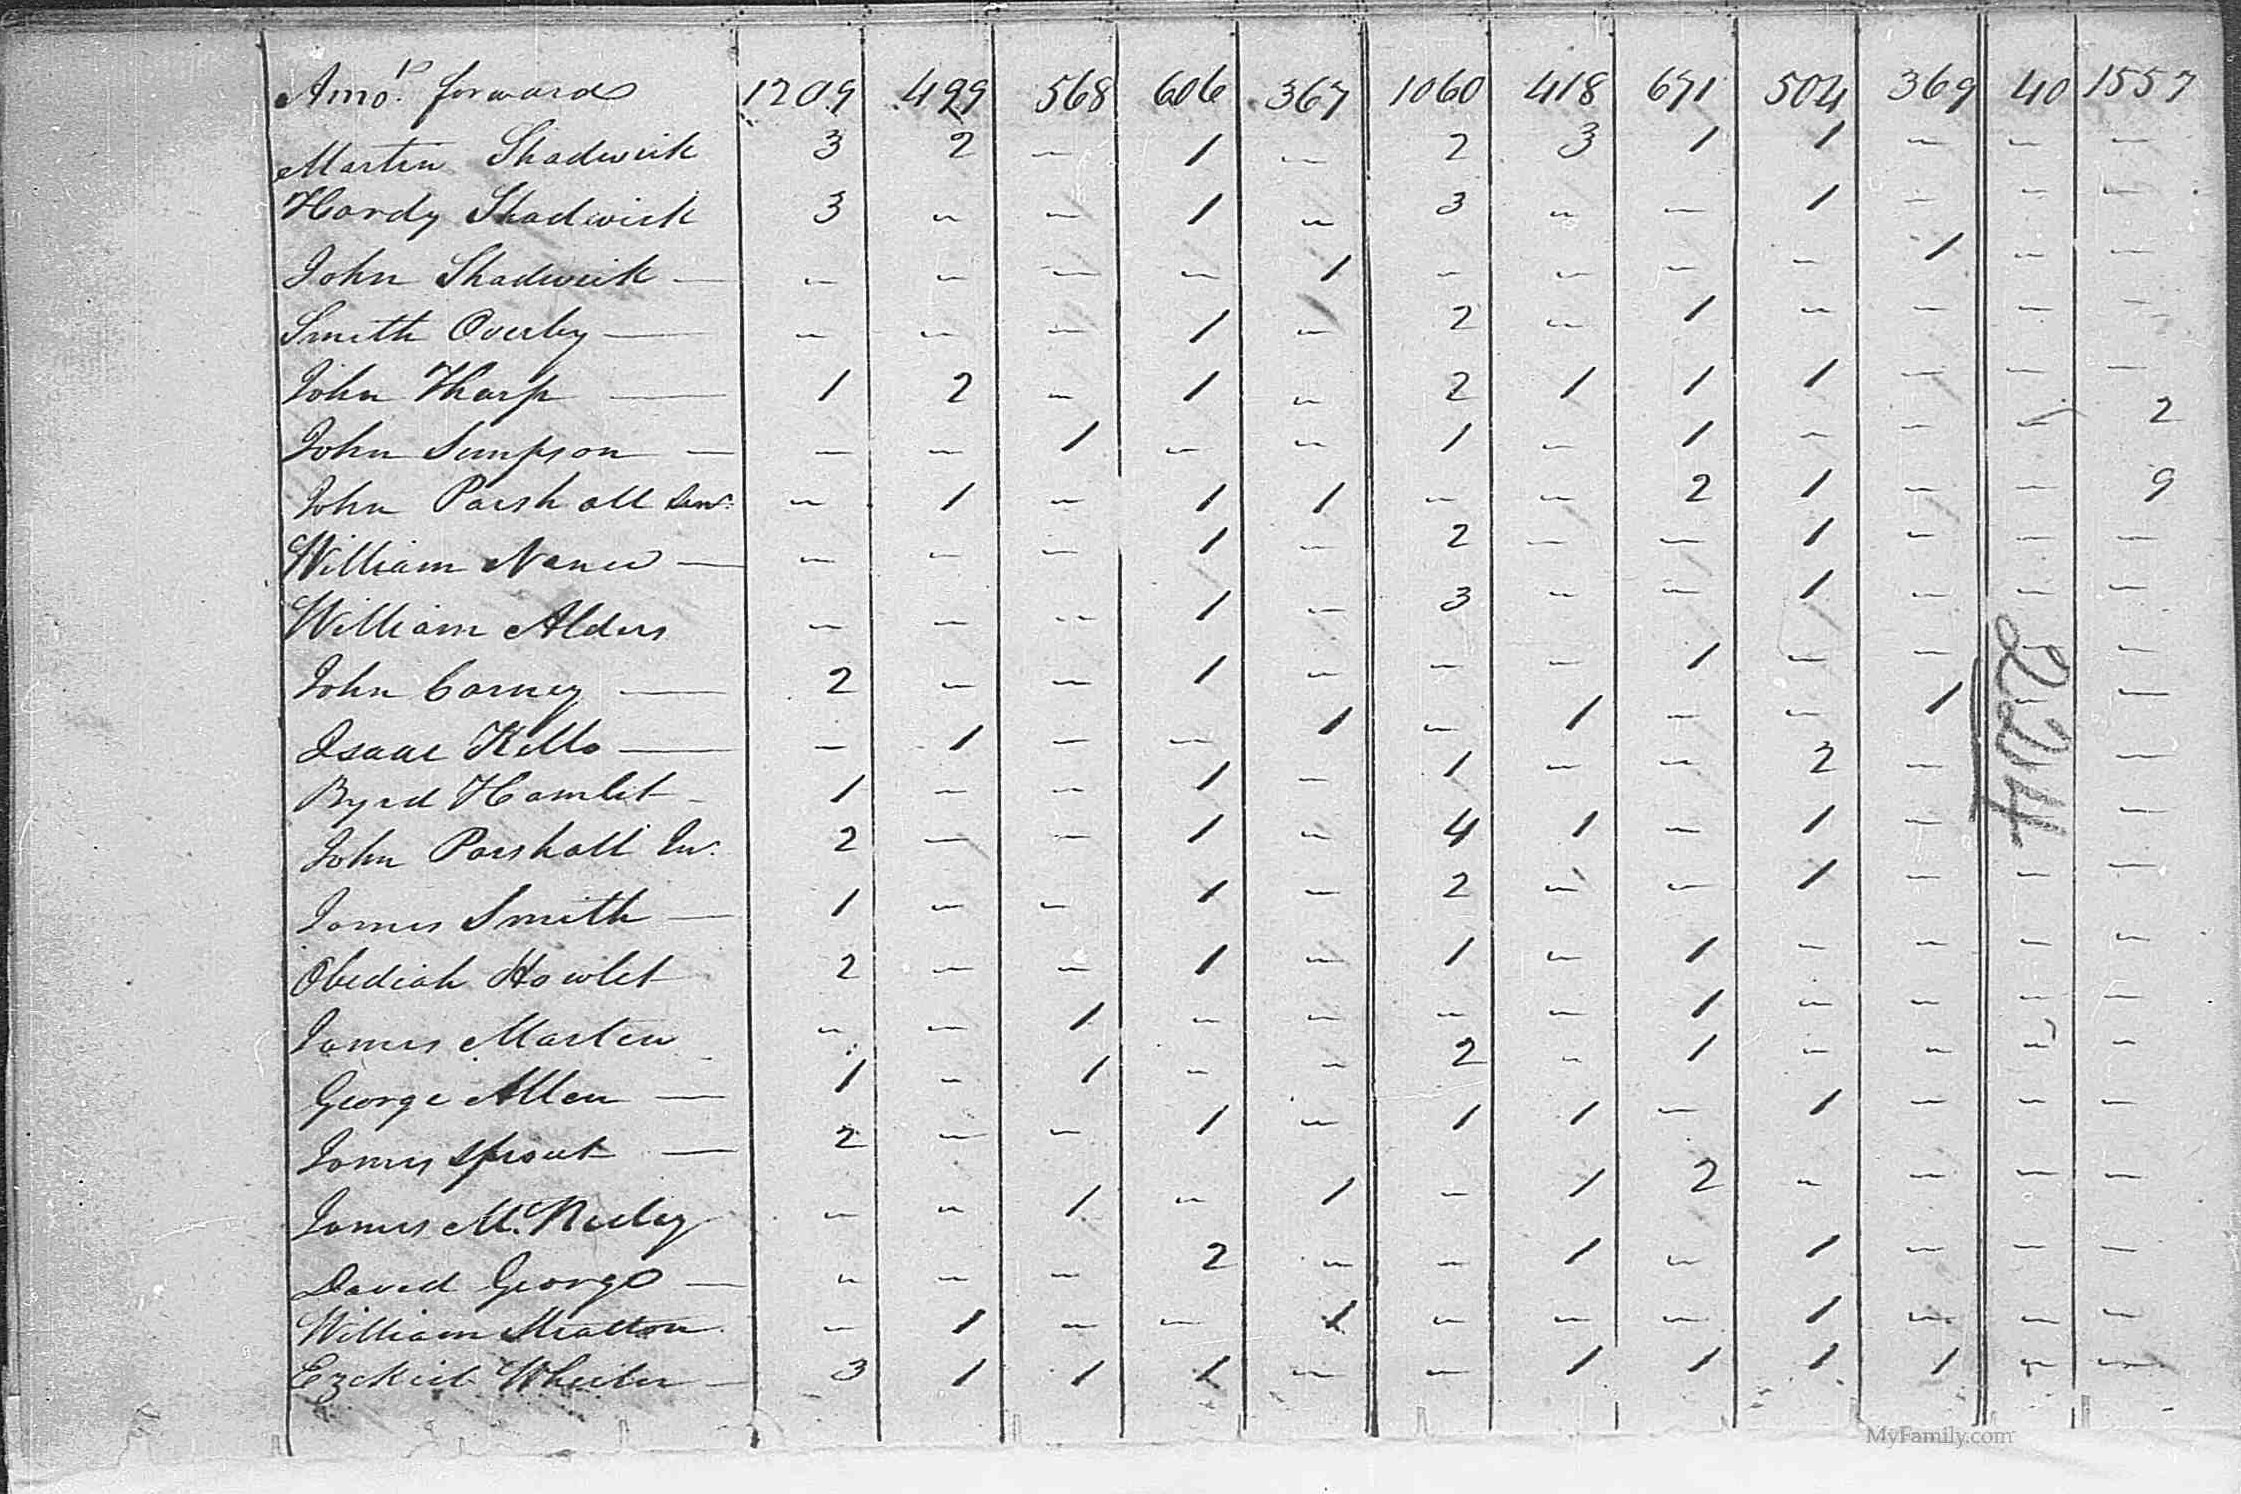 Amot. forward 1209 499 568 606 367 1060 418 671 504 369 40 1557
Martin Shadwick 3 2 - 1 - 2 3 1 1 - - -
Hardy Shadwick 3 - - 1 - 3 - - 1 - - -
John Shadwick - - - - - 1 - - - - 1 - -
Smith Overby - - - - 1 - 2 - 1 - - - -
John Tharp - 1 2 - 1 - 2 1 1 1 - - -
John Simpson - - - 1 - - 1 - 1 - - - 2
John Parshall Senr. - 1 - 1 1 - - 2 1 - - 9
William Nance - - - - 1 - 2 - - 1 - - -
William Alders - - - 1 - 3 - - 1 - - -
John Carney - 2 - - 1 - - - 1 - - -
Isaac Kello - - 1 - - 1 - 1 - - 1 - -
Byrd Hamlet - 1 - - 1 - 1 - - 2 - -
John Parshall Jur. 2 - - 1 - 4 1 - 1 - -
James Smith - 1 - - 1 - 2 - - 1 - - -
Obediah Howlet 2 - - 1 - 1 - 1 - - - -
James Martin - - 1 - - - - 1 - - - -
George Allen - 1 - 1 - - 2 - 1 - - - -
James Sprout - 2 - - 1 - 1 1 - 1 - - -
James Mc. Neeley - - 1 - 1 - 1 2 - - - -
David George - - - - 2 - - 1 - 1 - - -
William Stratton - 1 - - 1 - - - 1 - - -
Ezekiel Wheeler - 3 1 1 1 - - 1 1 1 1 - -
MyFamily.com